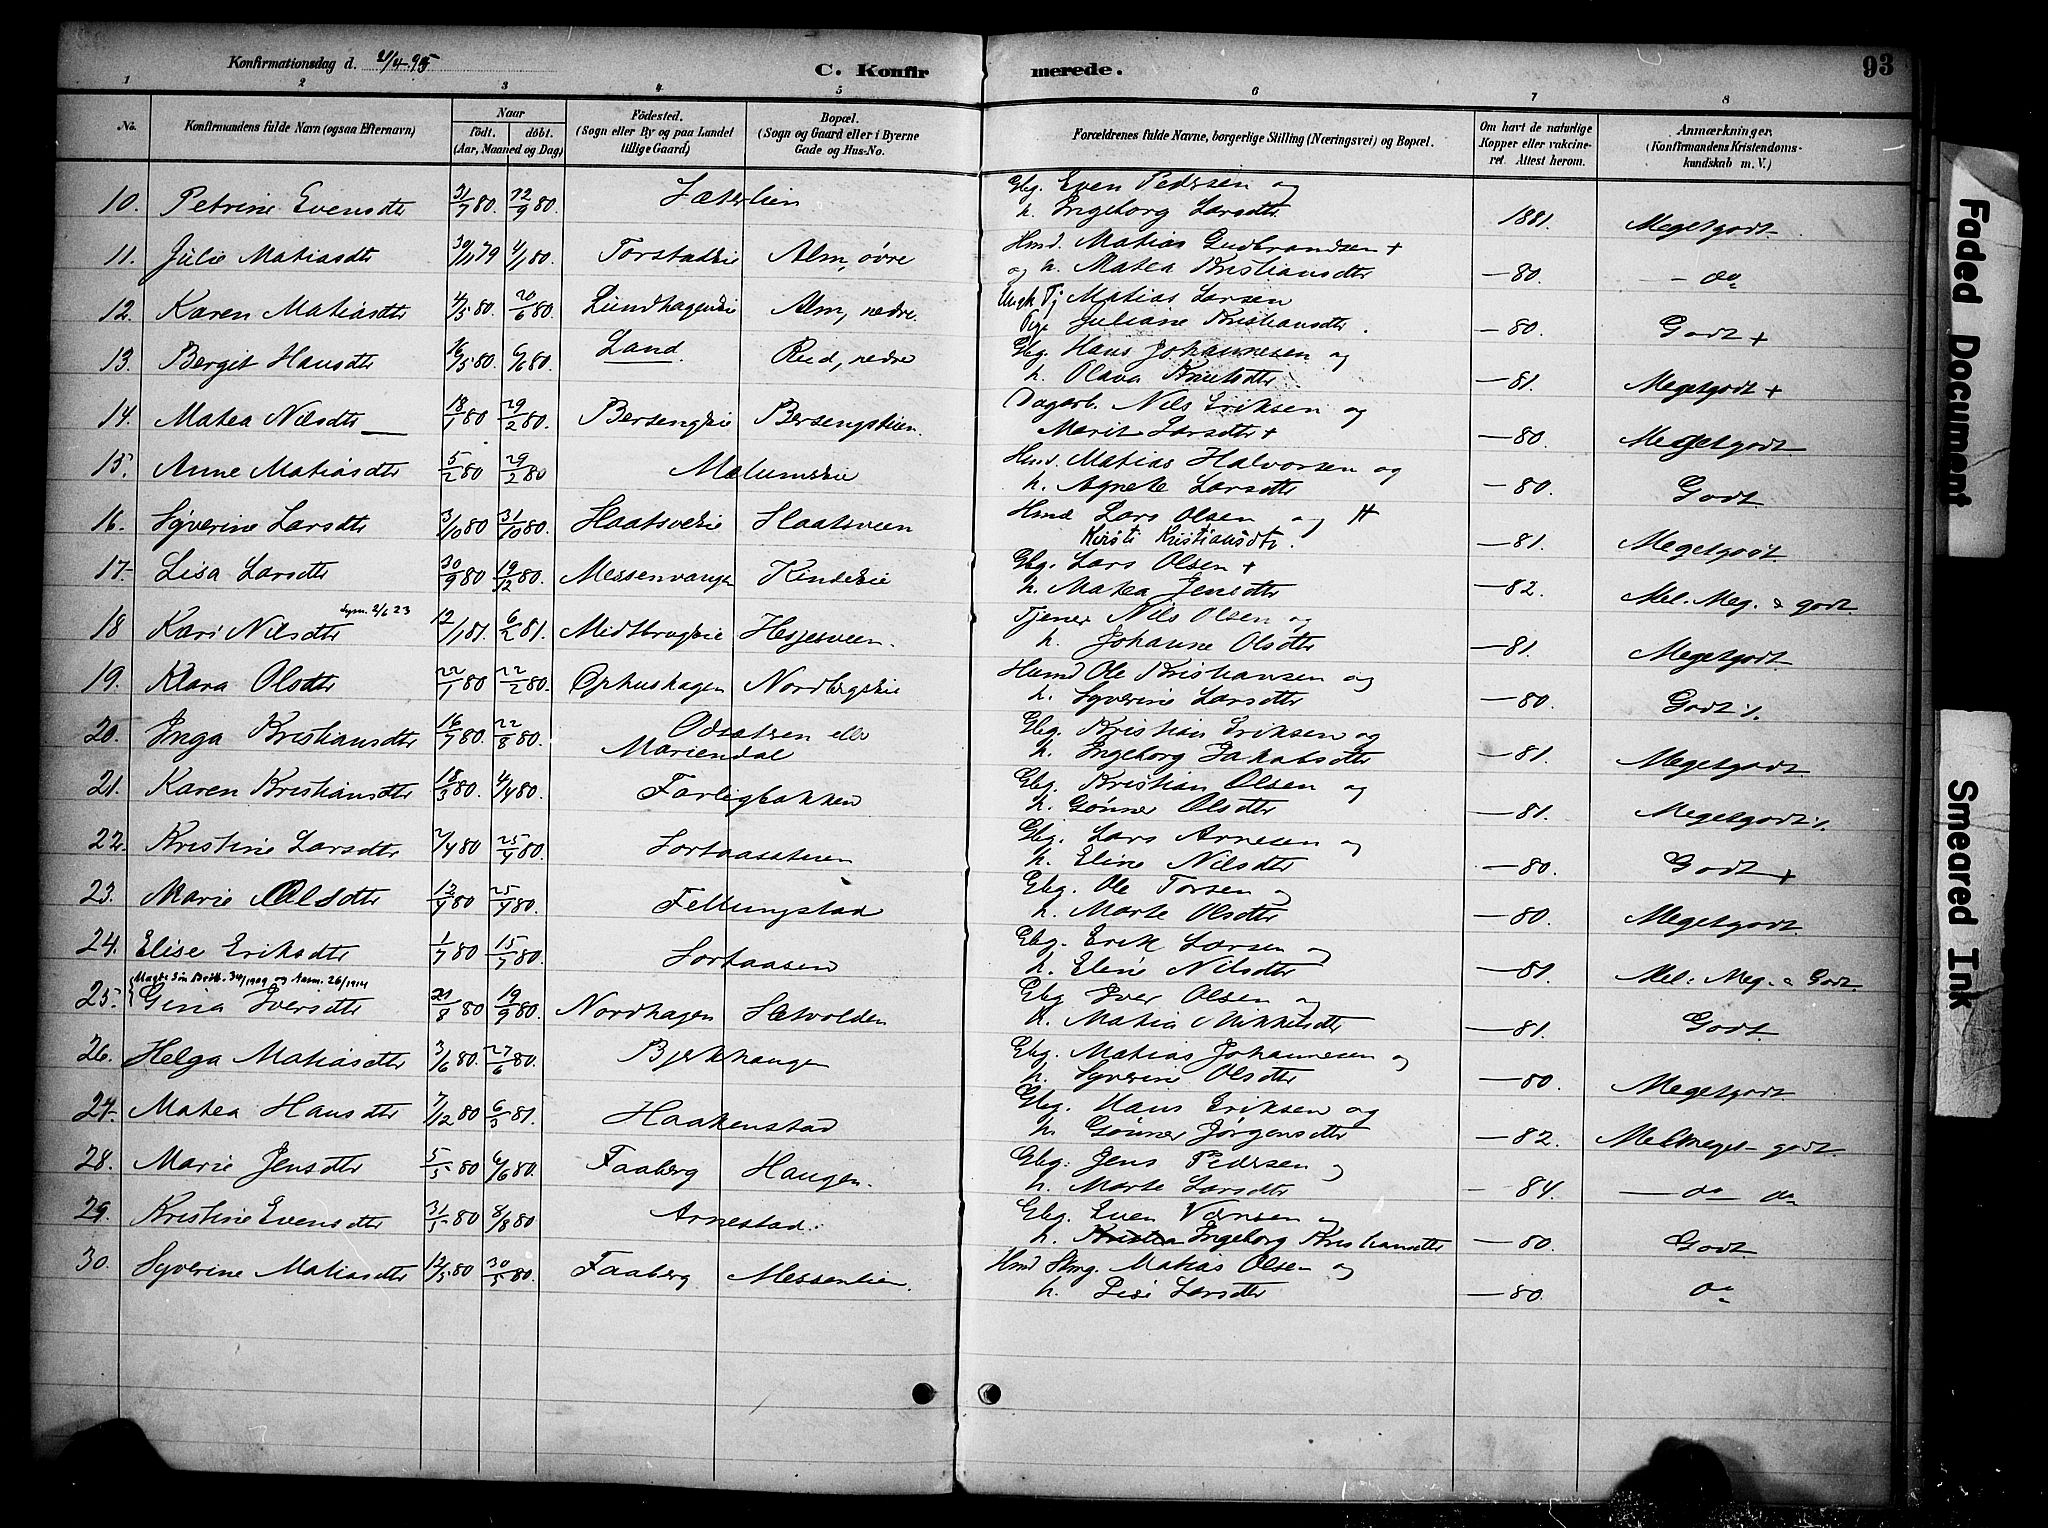 Konfirmationsdag d. 21/4 95
C. Konfirmerede.
93
1 2 3 4 5 6 7 8
No. Konfirmandens fulde Navn (ogsaa Efternavn) Naar født. døbt. (Aar, Maaned og Dag) Födested. (Sogn eller By og paa Landet tillige Gaard) Bopæl. (Sogn og Gaard eller i Byerne Gade og Hus-No. Forældrenes fulde Navne, borgerlige Stilling (Næringsvei) og Bopæl. Om havt de naturlige Kopper eller vakcineret. Attest herom. Anmærkninger. (Konfirmandens Kristendomskundskab m. V.)
10. Petrine Evensdtr 31/7 80. /9 80. Sæterlien Gbg. Even Pedersen og
h. Ingeborg Larsdtr 1881. Megetgodt.
11. Julie Matiasdtr 30/11 79 4/1 80. Torstadeie Alm, øvre Hmd. Matias Gudbrandsen +
og h. Matea Kristiansdtr — 80. - do
12. Karen Matiasdtr 4/5 80. 20/6 80. Lundhageneie Alm, nedre. Ungk Tj Matias Larsen
Pige Juliane Kristiansdtr. — 80. Godt +
13. Bergit Hansdtr 16/5 80. 6/6 80. Land. Rud, nedre Gbg. Hans Johannesen og
h. Olava Knutsdtr — 81. Megetgodt +
14. Matea Nilsdtr 18/1 80 29/2 80. Bersengeie Bersengseien. Dagarb. Nils Eriksen og
Marit Larsdtr + — 80. Megetgodt
15. Anne Matiasdtr 5/2 80 29/2 80 Mælumseie Hmd. Matias Halvorsen og
h. Agnete Larsdtr — 80. Godt.
16. Syverine Larsdtr 3/10 80 31/10 80. Slaatsveeie Slaatsveen Hmd Lars Olsen og
Kirsti Kristiansdtr. — 81. Megetgodt.
17. Lisa Larsdtr 30/9 80 19/12 80. Messenvangen Kindseie Gbg. Lars Olsen +
h. Matea Jensdtr — 82. Mel. Meg. & godt.
18 Kari Nilsdtr 12/1 81. 6/2 81. Midtbrugeie Hesjesveen. Tjener Nils Olsen og
h. Johanne Olsdtr — 81. Megetgodt.
19. Klara Olsdtr 22/1 80 22/2 80. Ophushagen Nordbygseie Husmd Ole Kristiansen og
h. Syverine Larsdtr — 80. Godt %.
20. Inga Kristiansdtr 16/7 80. 22/8 80. Odsætren eller
Mariendal Gbg. Kristian Eriksen og
h. Ingeborg Jakobsdtr — 81. Megetgodt
21. Karen Kristiansdtr 18/3 80. 4/4 80. Farligbakken Gbg. Kristian Olsen og
h. Gønner Olsdtr — 81. Megetgodt %.
22. Kristine Larsdtr 2/4 80 25/4 80. Sortaasteien Gbg. Lars Arnesen og
h. Eline Nilsdtr — 80. Godt +
23. Marie Olsdtr 12/4 80 25/4 80. Fellungstad Gbg. Ole Torsen og
h. Marte Olsdtr — 80. Megetgodt.
24. Elise Eriksdtr 1/7 80. 15/7 80. Sortaasen Gbg. Erik Larsen og
h. Eline Nilsdtr — 81. Mel: Meg. & Godt.
25. Gina Iversdtr 21/8 80 19/9 80. Nordhagen Sætvolden Gbg Iver Olsen og
h. Matia Mikkelsdtr — 81. Godt.
26. Helga Matiasdtr 3/6 80. 27/6 80. Bjerkhaugen Gbg. Matias Johannesen og
h. Syverine Olsdtr — 80. Megetgodt.
27. Matea Hansdtr 7/12 80 6/3 81. Haakenstad Gbg. Hans Eriksen og
h. Gønner Jørgensdtr — 82. Mel meget - godt.
28. Marie Jensdtr 5/5 80 6/6 80. Faaberg Haugen. Gbg. Jens Pedersen og
h. Marte Larsdtr - 84. — do — do
29. Kristine Evensdtr 31/5 80 8/8 80 Arnestad. Gbg. Even og
h. Ingeborg Kristiansdtr — 80. Godt.
30. Syverine Matiasdtr 12/5 80 30/5 80. Faaberg Messenlien. Hmd Matias Olsen og
h. Lise Larsdtr — 80. do
Faded Document
Smeared Ink